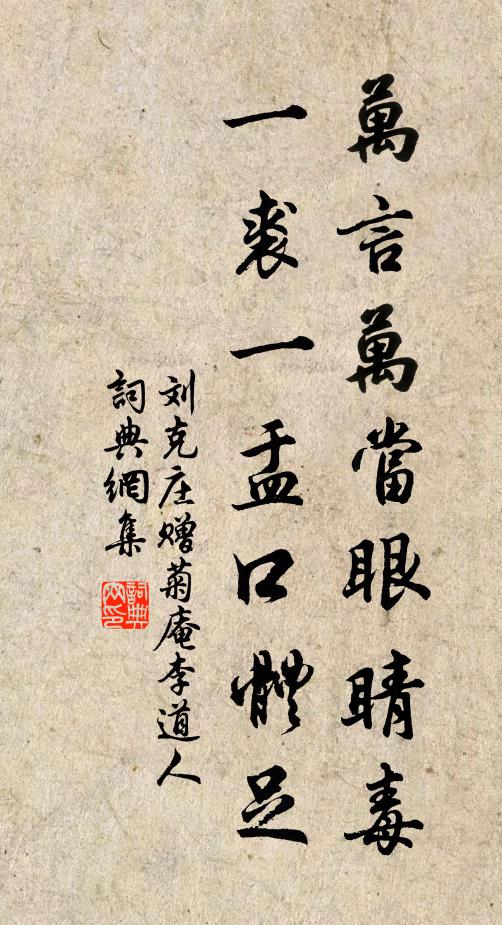 萬言萬當眼睛毒
一裘一盂口體足
刘克庄赠菊庵李道人
詞典網集
詞典网印